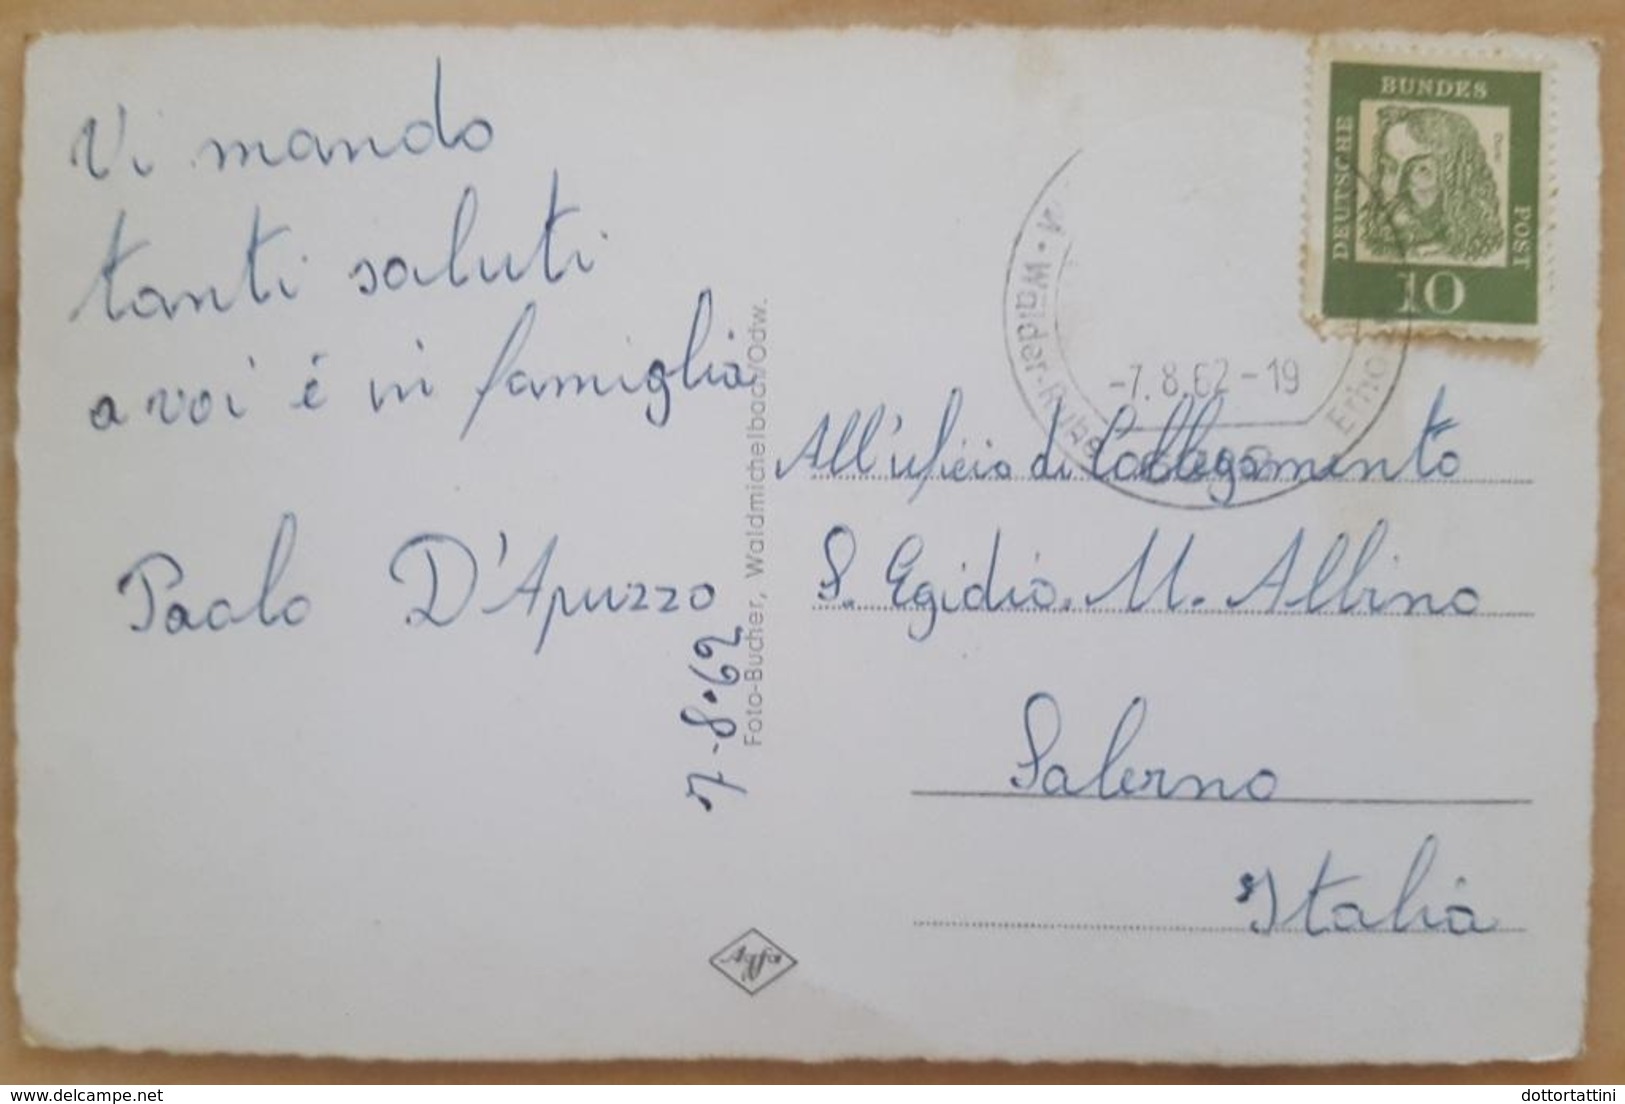 Vi mando
tanti saluti
a voi é in famiglia
Paolo D'Apuzzo
7-8.62
Foto-Bucher, Waldmichelbach/Odw.
Agfa
BUNDES
DEUTSCHE
POST
Dürer
10
-7.8.62-19
All'uficio di Collegamento
S. Egidio. M. Albino
Salerno
Italia
www.delcampe.net
dottortattini